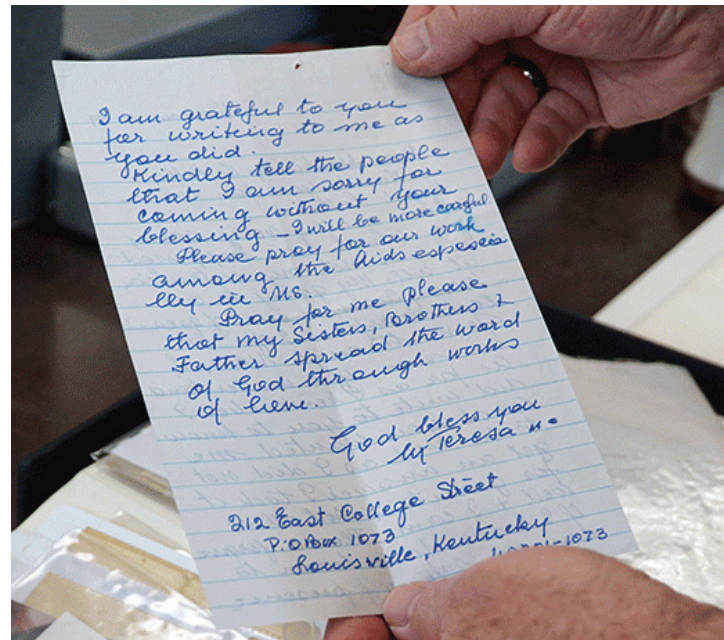 I am grateful to you
for writing to me as
you did.
Kindly tell the people
that I am sorry for
coming without your
blessing – I will be more careful
Please pray for our work
among the Aids especia
lly in US.
Pray for me please
that my Sisters, Brothers &
Father spread the word
of God through works
of love.
God bless you
Teresa
212 East College Street
P.O Box 1073
Louisville, Kentucky
-1073